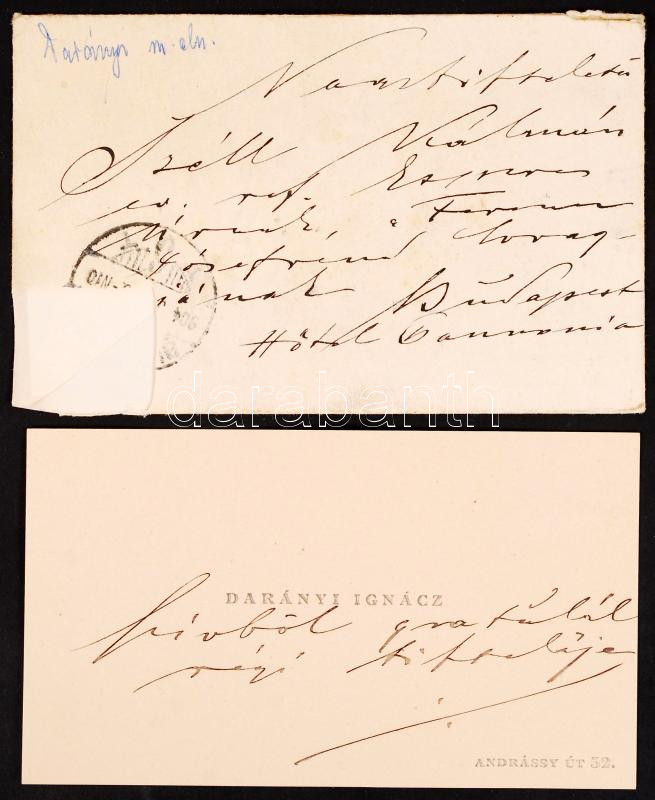 Darányi m. eln.
Nagytiszteletű
Széll Kálmán
ev. ref. Esperes
Úrnak, a Ferencz
József rend lovag-
jának Budapest
Hôtel Pannonia
darabanth
DARÁNYI IGNÁCZ
szívből gratulál
régi tisztelője
ANDRÁSSY ÚT 52.